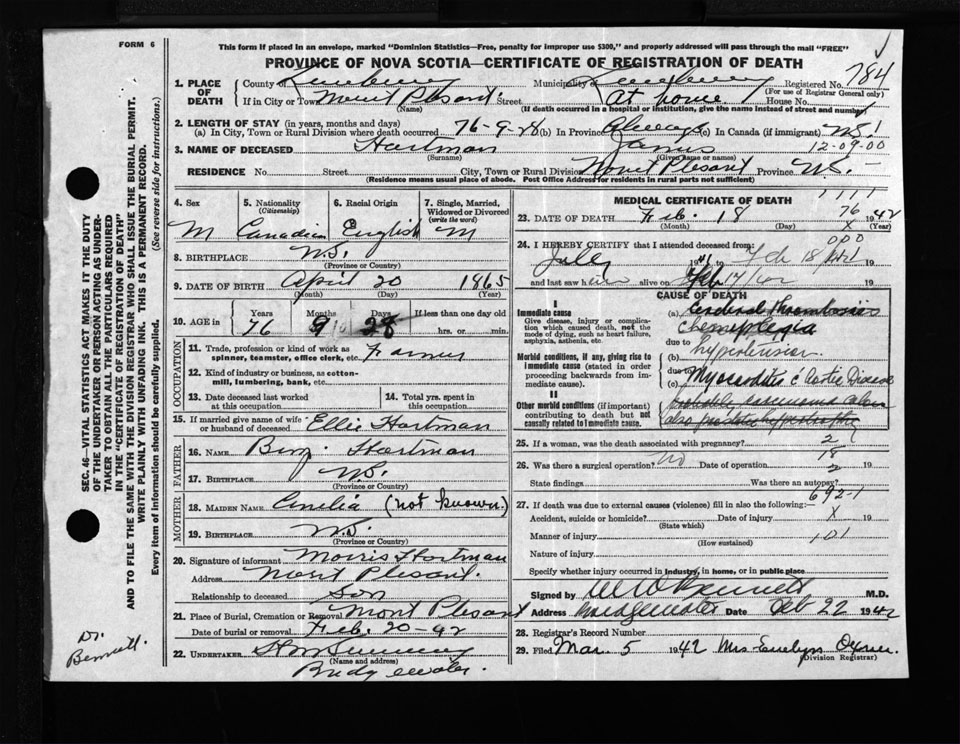 FORM 6
This form if placed in an envelope, marked "Dominion Statistics—Free, penalty for improper use $300," and properly addressed will pass through the mail "FREE"
PROVINCE OF NOVA SCOTIA—CERTIFICATE OF REGISTRATION OF DEATH
784
1. PLACE OF DEATH County of Lunenburg Municipality of Lunenburg Registered No.
(For use of Registrar General only)
If in City or Town Mont Plesant Street At home House No.
(Name) (If death occurred in a hospital or institution, give the name instead of street and number)
2. LENGTH OF STAY (in years, months and days)
(a) In City, Town or Rural Division where death occurred 76-9-28 (b) In Province Always (c) In Canada (if immigrant) N.S.
3. NAME OF DECEASED Hartman James 12-09-00
(Surname) (Given name or names)
RESIDENCE No. Street City, Town or Rural Division Mont Plesant Province N.S.
(Residence means usual place of abode. Post Office Address for residents in rural parts not sufficient)
4. Sex 5. Nationality (Citizenship) 6. Racial Origin 7. Single, Married, Widowed or Divorced (write the word)
M Canadian English M
8. BIRTHPLACE N.S.
(Province or Country)
9. DATE OF BIRTH April 20 1865
(Month) (Day) (Year)
10. AGE in Years Months Days If less than one day
76 9 10 28 hrs. or min.
OCCUPATION
11. Trade, profession or kind of work as spinner, teamster, office clerk, etc. Farmer
12. Kind of industry or business, as cotton-mill, lumbering, bank, etc.
13. Date deceased last worked at this occupation 14. Total yrs. spent in this occupation
15. If married give name of wife or husband of deceased Ellie Hartman
FATHER
16. NAME Benj. Hartman
17. BIRTHPLACE N.S.
(Province or Country)
MOTHER
18. MAIDEN NAME Amelia (not known.)
19. BIRTHPLACE N.S.
(Province or Country)
20. Signature of informant Morris Hartman
Address Mont Plesant.
Relationship to deceased Son
21. Place of Burial, Cremation or Removal Mont Plesant
Date of burial or removal Feb. 20-42
22. UNDERTAKER
(Name and address)
Bridgewater.
MEDICAL CERTIFICATE OF DEATH
1111
76
23. DATE OF DEATH Feb. 18 1942
(Month) (Day) X (Year)
000
24. I HEREBY CERTIFY that I attended deceased from:
July 1941 to Feb 18 19
and last saw him alive on Feb 17/42 19
CAUSE OF DEATH
I
Immediate cause
Give disease, injury or complication which caused death, not the mode of dying, such as heart failure, asphyxia, asthenia, etc.
(a) Cerebral Thrombosis
due to
(b) hypertension
Morbid conditions, if any, giving rise to immediate cause (stated in order proceeding backwards from immediate cause).
due to
(c) Myocarditis
II
Other morbid conditions (if important) contributing to death but not causally related to immediate cause.
25. If a woman, was the death associated with pregnancy? 2
18
26. Was there a surgical operation? No Date of operation 2 19
State findings Was there an autopsy?
692-1
27. If death was due to external causes (violence) fill in also the following:
Accident, suicide or homicide? Date of injury X 19
(State which)
Manner of injury 101
(How sustained)
Nature of injury
Specify whether injury occurred in Industry, in home, or in public place
Signed by Bennett M.D.
Address Bridgewater Date Feb 22 1942
28. Registrar's Record Number
29. Filed Mar. 5 1942 Mrs Evelyn
(Division Registrar)
SEC. 46—VITAL STATISTICS ACT MAKES IT THE DUTY OF THE UNDERTAKER OR PERSON ACTING AS UNDERTAKER TO OBTAIN ALL THE PARTICULARS REQUIRED IN THE "CERTIFICATE OF REGISTRATION OF DEATH" AND TO FILE THE SAME WITH THE DIVISION REGISTRAR WHO SHALL ISSUE THE BURIAL PERMIT.
WRITE PLAINLY WITH UNFADING INK. THIS IS A PERMANENT RECORD.
Every item of information should be carefully supplied. (See reverse side for instructions.)
Dr. Bennett.